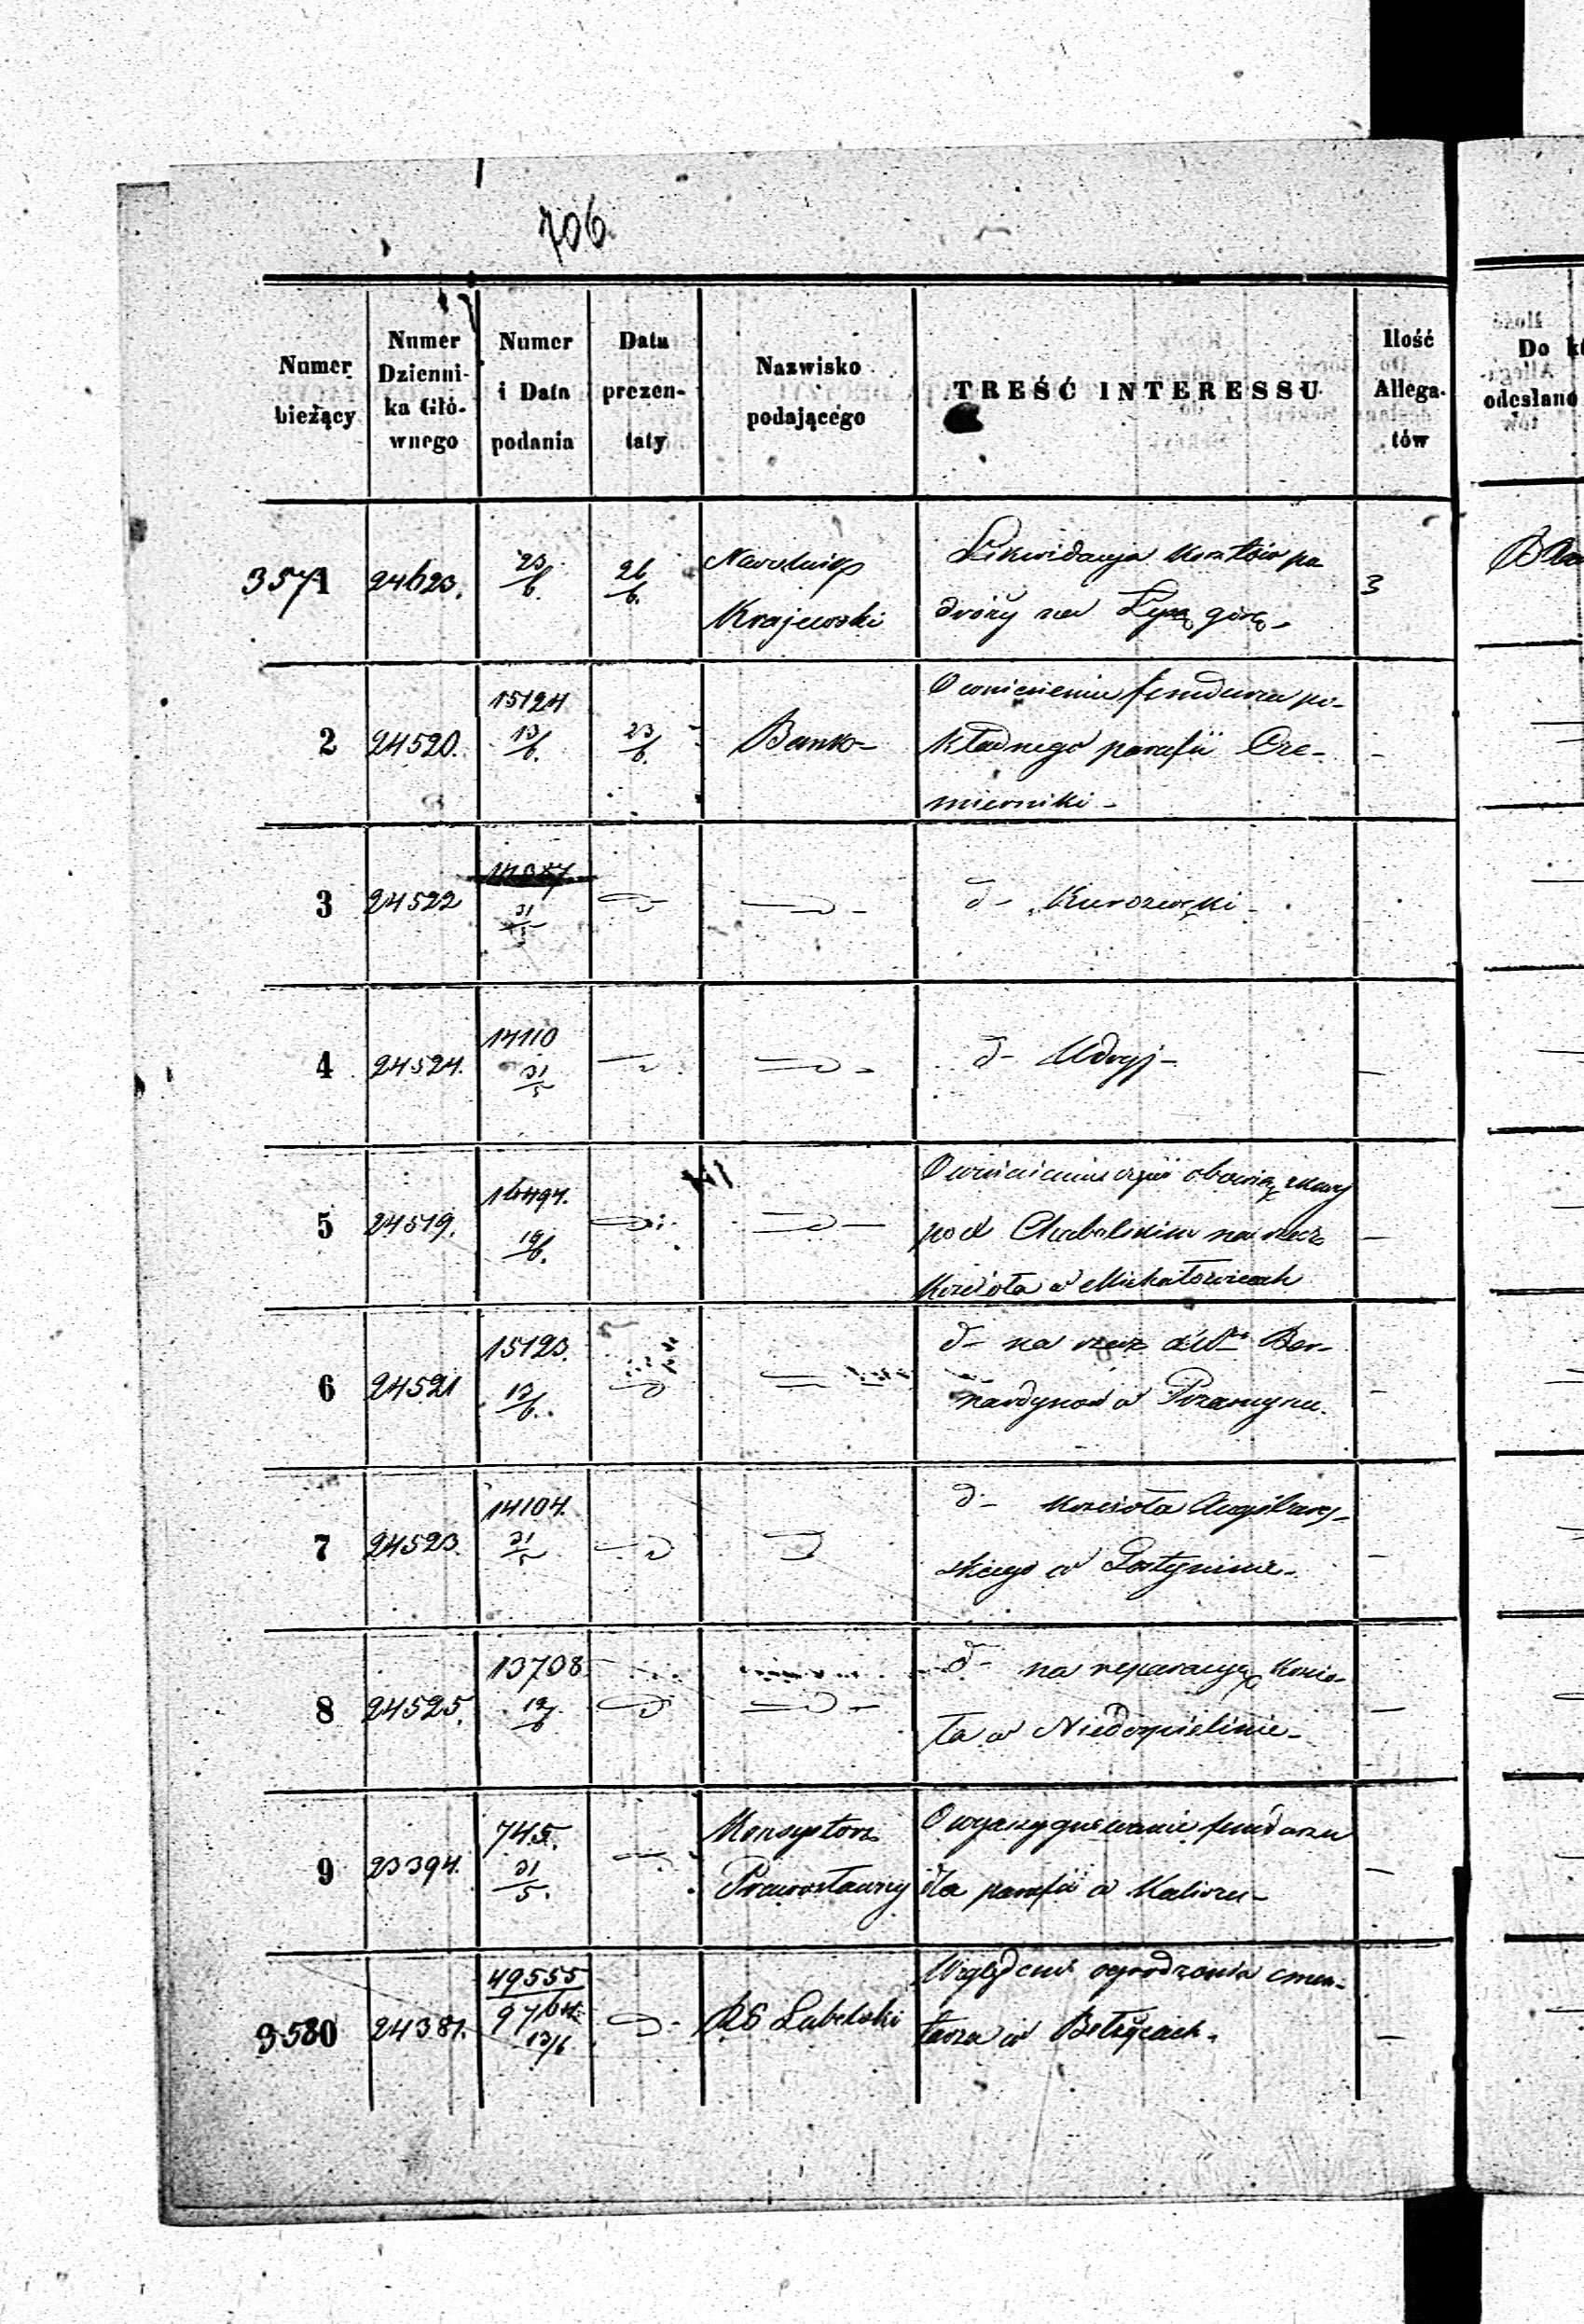 706
Numer bieżący
Numer Dzienni- ka Głó- wnego
Numer i Data podania
Data prezen- taty
Nazwisko podającego
TREŚĆ INTERESSU
Ilość Allega- tów
Do
odesłano
3571 24623. 23/6. 26/6. Naczelnik Krajewski Likwidacja kosztów po- 3
dróży na Łysą górę.
2 24520. 15124 13/6. 23/6. Bank O wniesieniu funduszu po-
kładnego parafii Cze-
mierniki
3 24522 31/5 d- Kurozwęki
4 24524. 14110 31/5 d- Udryj
5 24519. 16494. 19/6. O wniesienie
pod na rzecz
Kościoła w Michałowicach
6 24521 15123. 13/6. d- na rzecz Ber-
nardynów w Przasnyszu.
7 24523. 14104. 31/5 d- Kościoła Augsburs-
kiego w Gostyninie
8 24525. 13708 12/6 d- na reparacyę Kościo-
ła w Niedośpielinie
9 23394. 745. 31/5. Konsystorz Prawosławny O wyasygnowanie funduszu
dla parafii w Kaliszu
3580 24381. 49555 9764 13/6 RG Lubelski Względem ogrodzenia cmen-
tarza w Bełżycach.